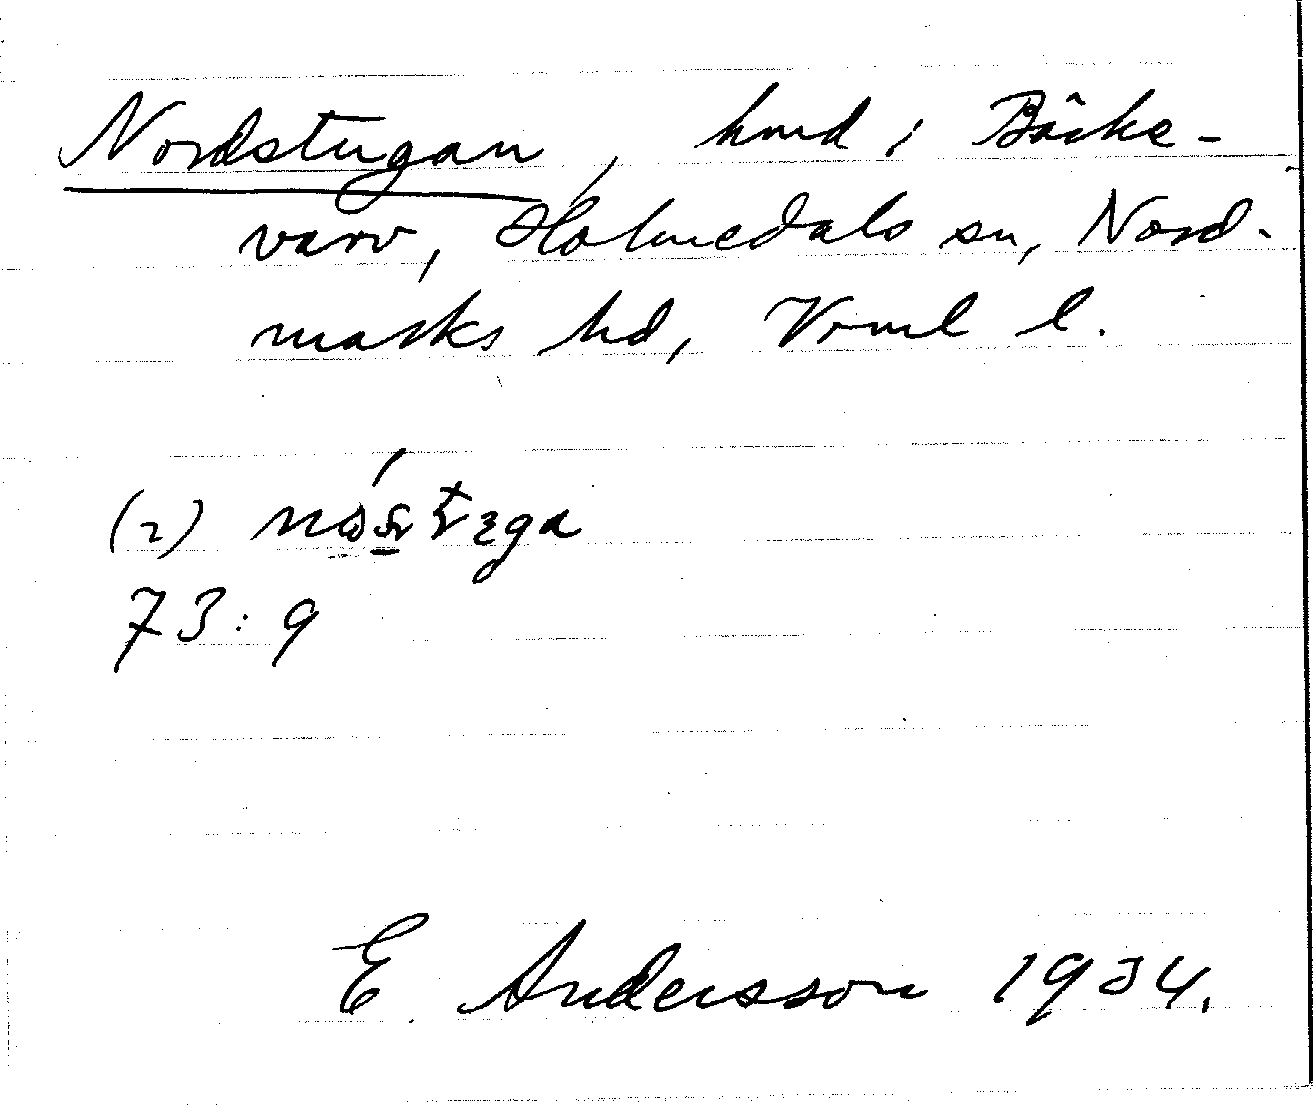 Nordstugan, hmd i Bäcke-
varv, Holmedals sn, Nord-
marks hd, Vrml l.
(2)
73:9
E. Andersson 1934.